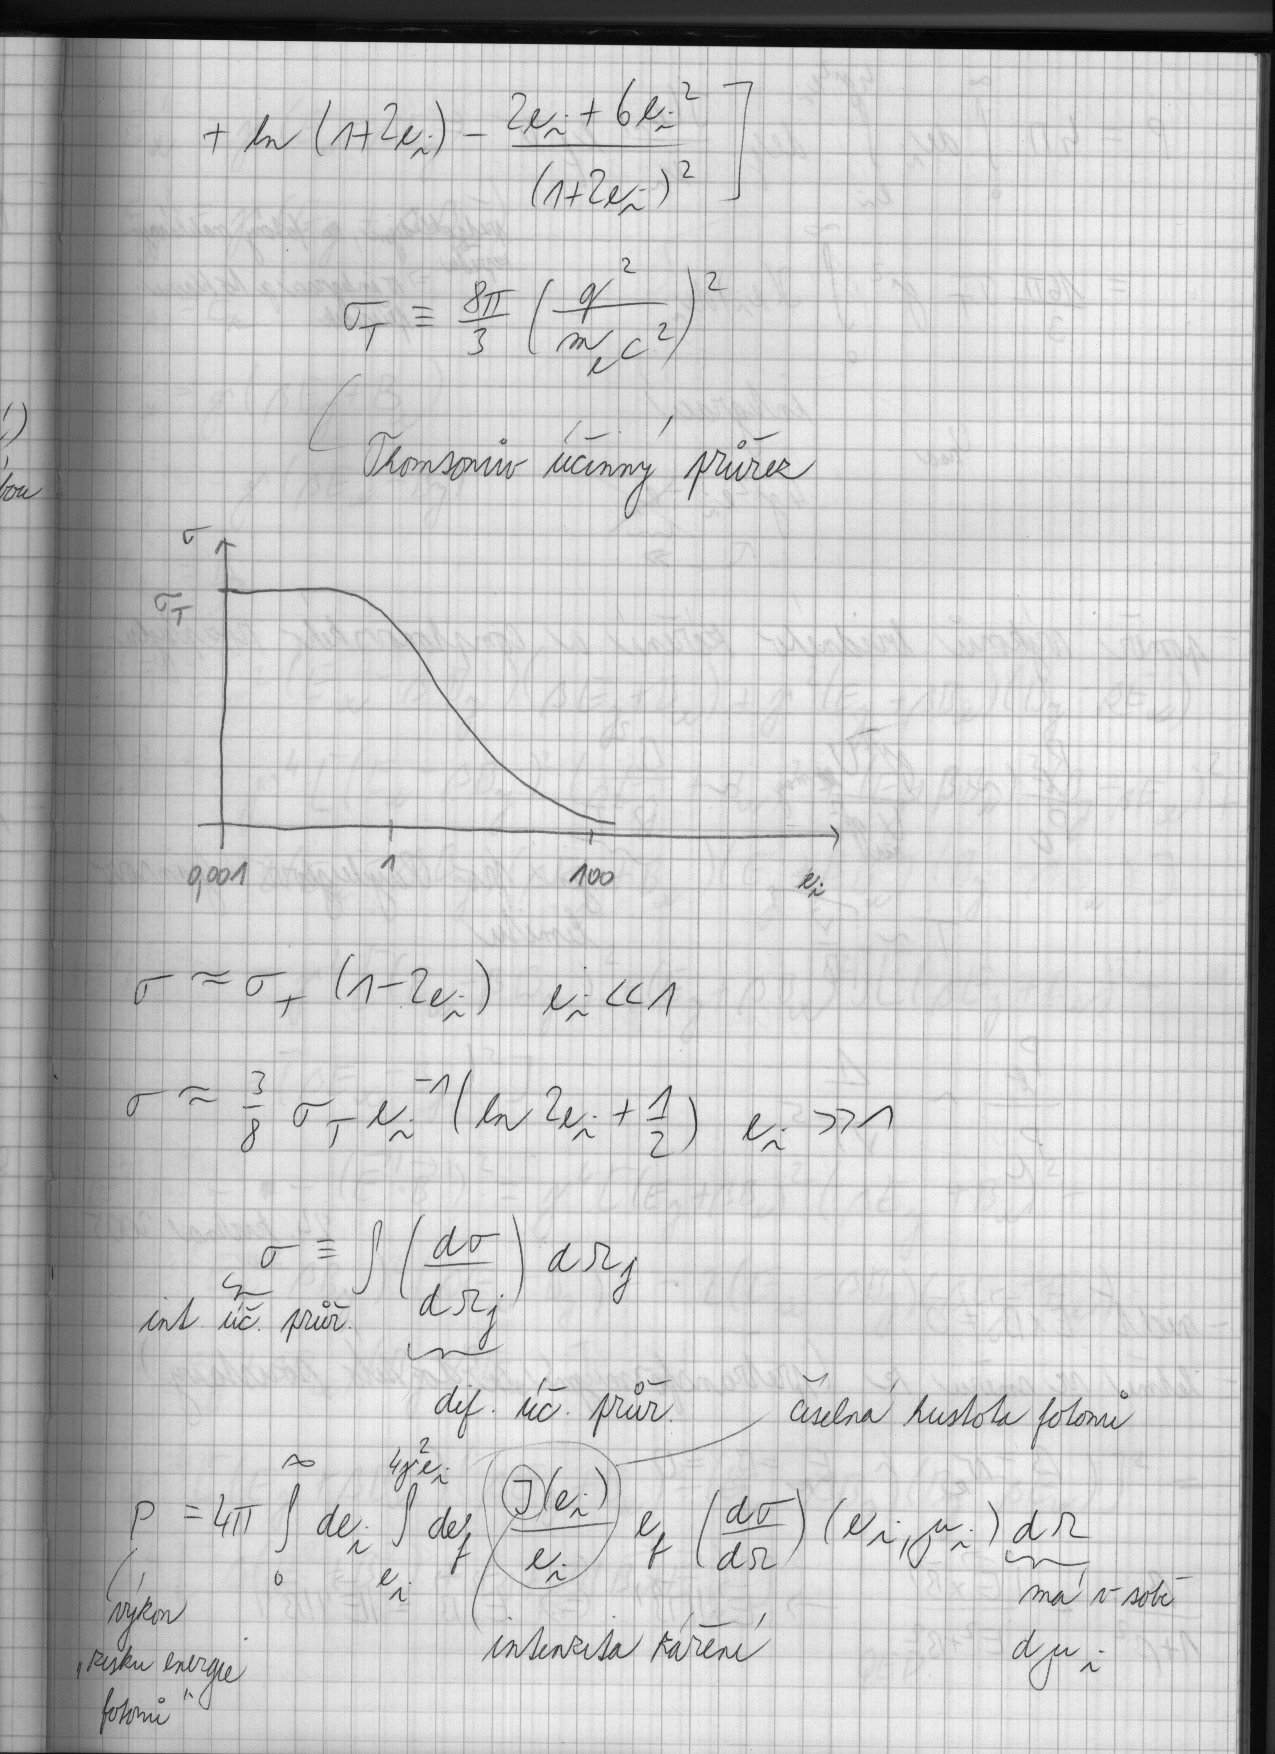 + ln (1+2e_i) - (2e_i + 6e_i^2)/(1+2e_i)^2 ]
σ_T ≡ 8π/3 (q^2/(m_e c^2))^2
Thomsonův účinný průřez
σ
σ_T
0,001 1 100 e_i
σ ≈ σ_T (1-2e_i) e_i << 1
σ ≈ 3/8 σ_T e_i^-1 (ln 2e_i + 1/2) e_i >> 1
σ ≡ ∫ (dσ/dΩ_f) dΩ_f
int. úč. průř.
dif. úč. průř. číselná hustota fotonů
P = 4π ∫_0^∞ de_i ∫_{e_i}^{4γ^2 e_i} de_f J(e_i)/e_i e_f (dσ/dΩ) (e_i, μ_i) dΩ
výkon
„zisku energie
fotonů"
intenzita záření
má v sobě
dμ_i